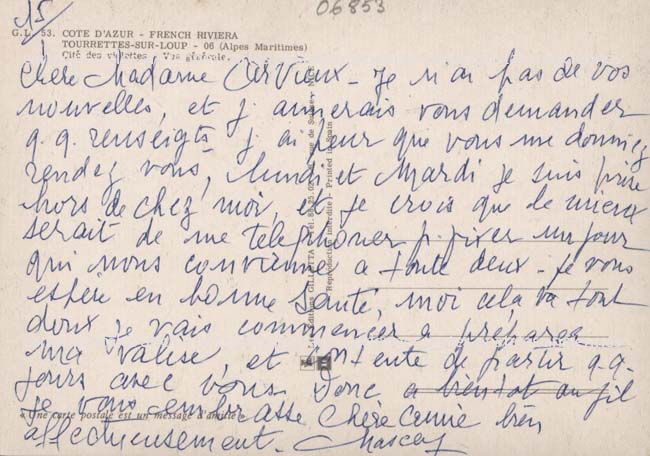 15/
06853
G.L. 53. COTE D'AZUR - FRENCH RIVIERA
TOURRETTES-SUR-LOUP - 06 (Alpes Maritimes)
Cité des violettes - Vue générale.
Chère Madame - Je n'ai pas de vos
nouvelles, et j'aimerais vous demander
q.q. renseigts j'ai peur que vous me donniez
rendez vous, lundi et Mardi je suis prise
hors de chez moi, et je crois que le mieux
serait de me telephoner p. fixer un jour
qui nous convienne a toute deux - je vous
espère en bonne santé, moi cela va tout
doux je vais commencer a préparer
ma valise, et contente de partir q.q.
jours avec vous. Donc a bientot au fil
« Une carte postale est un message d'amitié »
je vous embrasse Chère amie bien
affectueusement -
Printed in Spain
Reproduction interdite